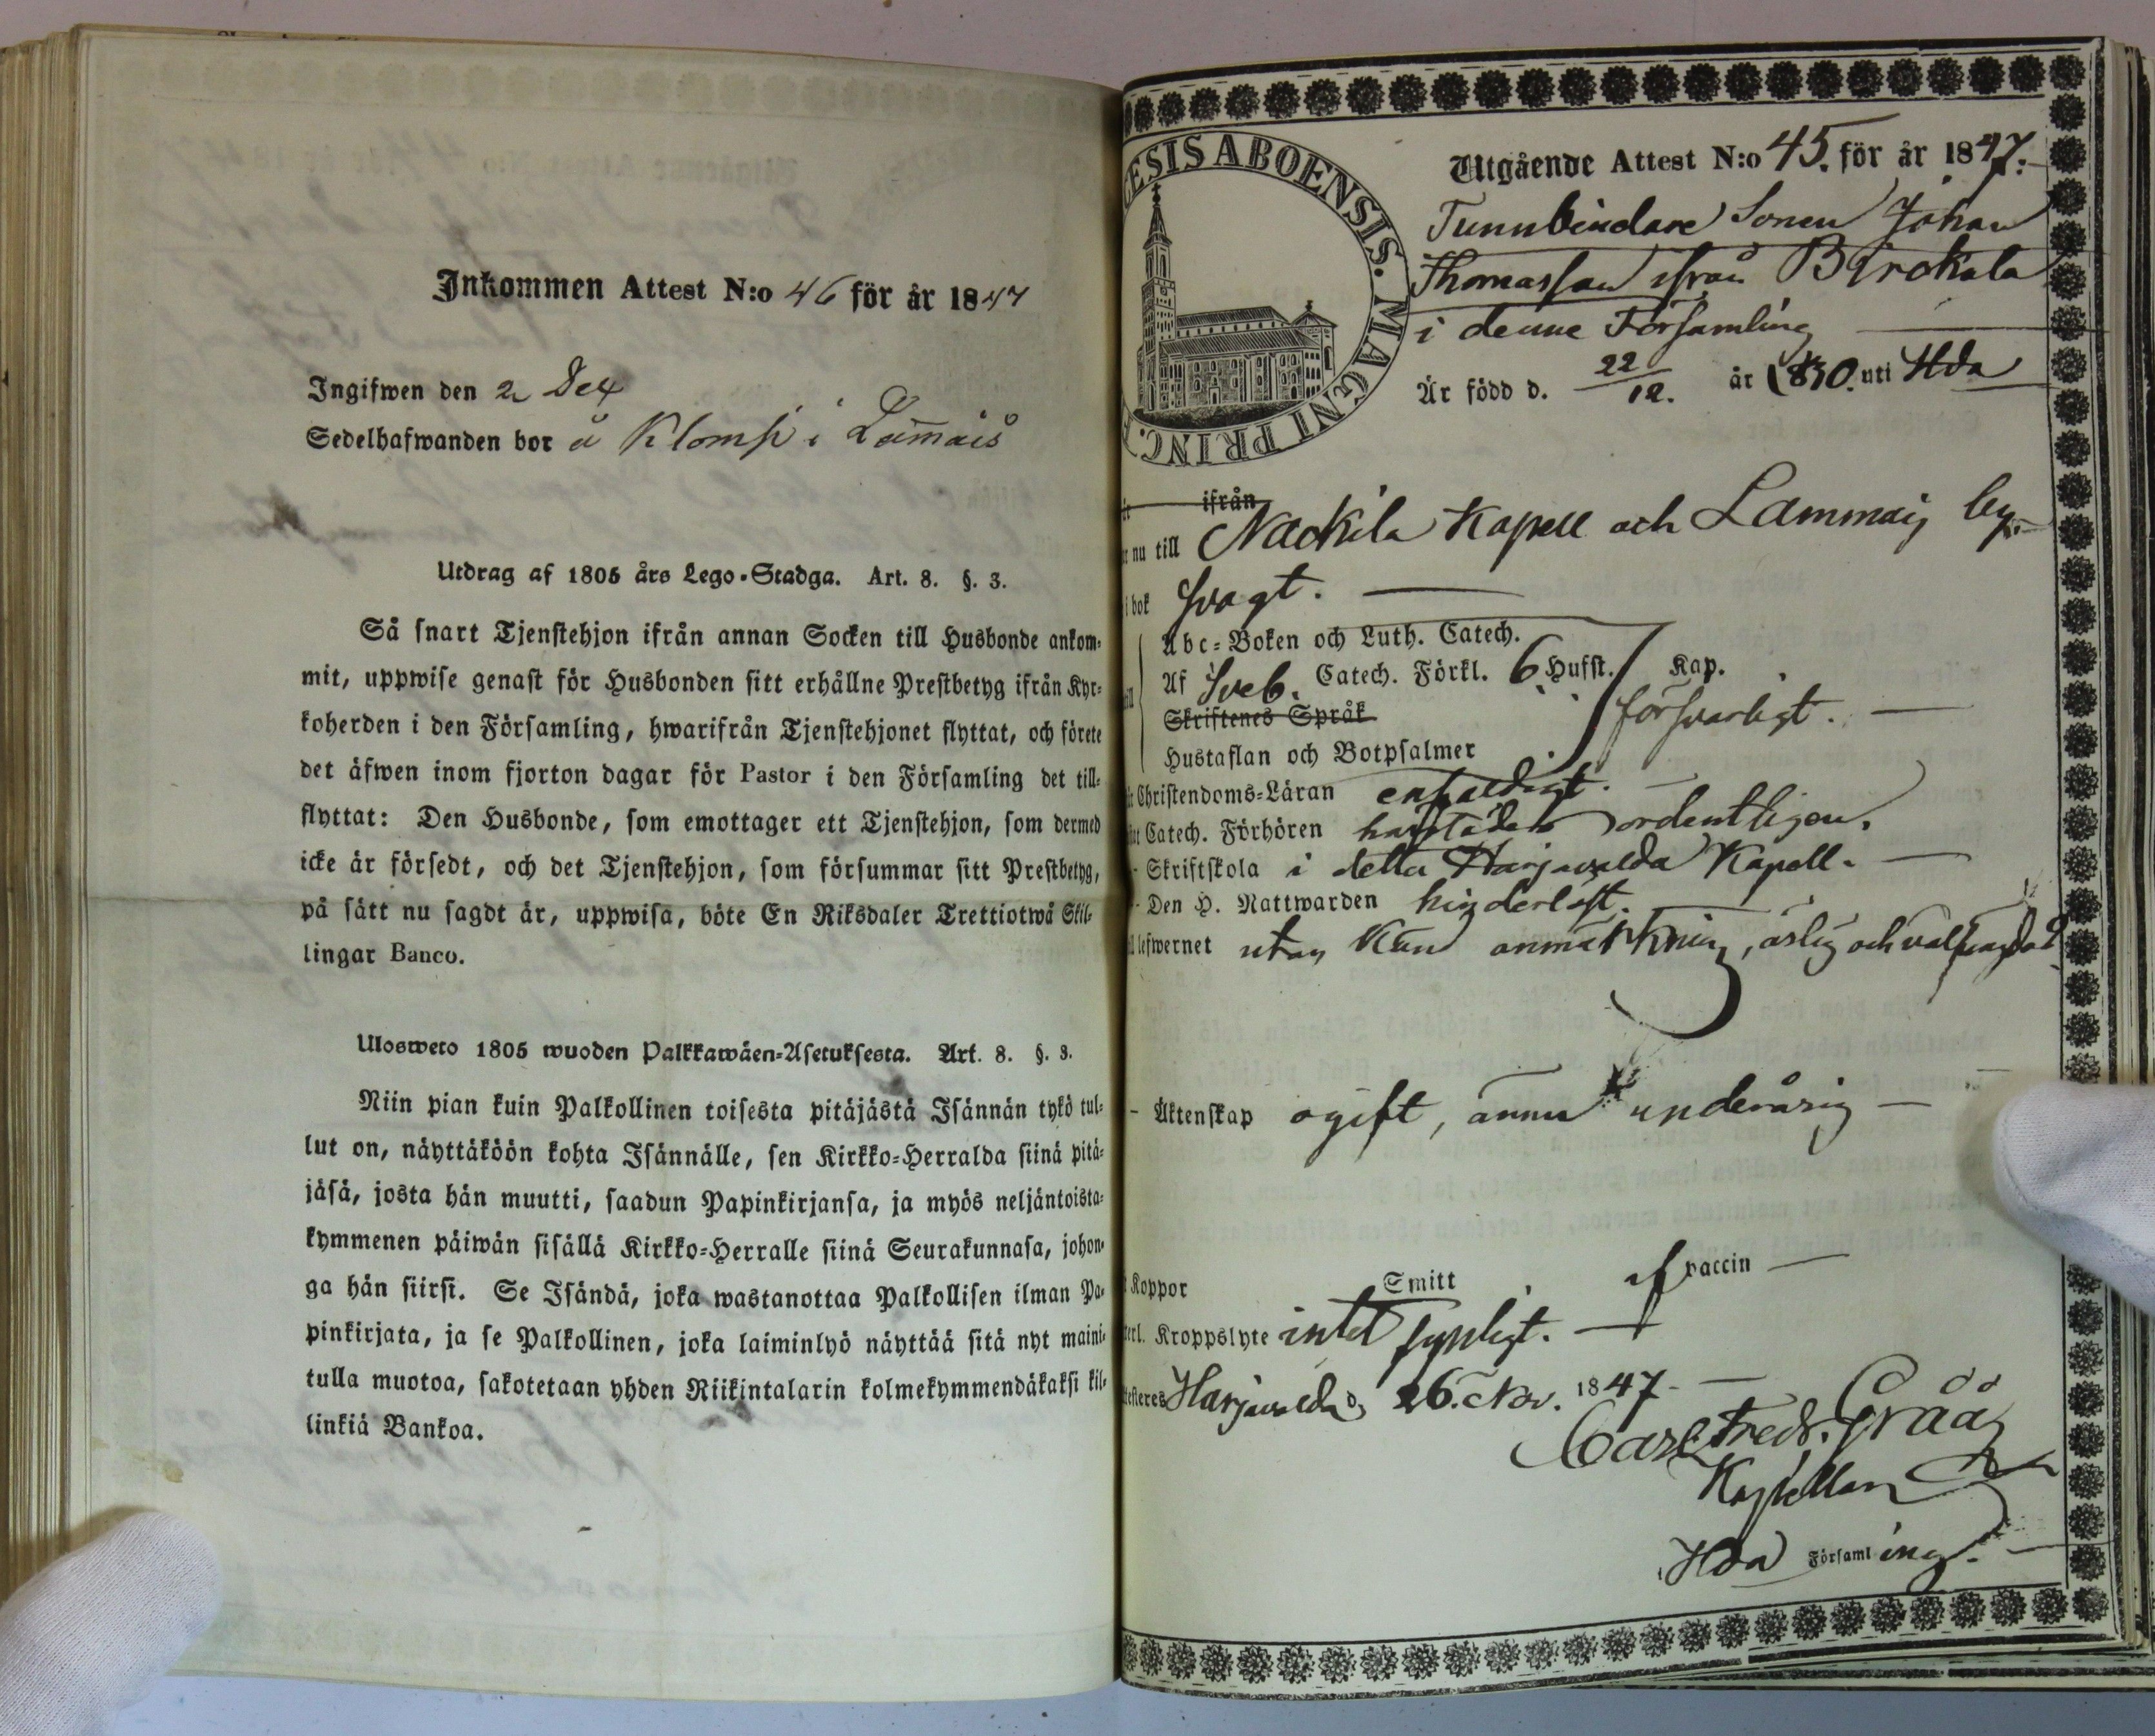 Inkommen Attest N:o 46 för år 1847
Ingifwen den 2 Dec
Sedelhafwanden bor å Klomsi i Lammais
Utdrag af 1805 års Lego-Stadga. Art. 8. §. 3.
Så snart Tjenstehjon ifrån annan Socken till Husbonde ankom-
mit, uppwise genast för Husbonden sitt erhållne Prestbetyg ifrån Kyr-
koherden i den Församling, hwarifrån Tjenstehjonet flyttat, och förete
det äfwen inom fjorton dagar för Pastor i den Församling det till-
flyttat: Den Husbonde, som emottager ett Tjenstehjon, som dermed
icke är försedt, och det Tjenstehjon, som försummar sitt Prestbetyg,
på sätt nu sagdt är, uppwisa, böte En Riksdaler Trettiotwå Skil-
lingar Banco.
Ulosweto 1805 wuoden Palkkawäen-Asetuksesta. Art. 8. §. 3.
Niin pian kuin Palkollinen toisesta pitäjästä Isännän tykö tul-
lut on, näyttäköön kohta Isännälle, sen Kirkko-Herralda siinä pitä-
jäsä, josta hän muutti, saadun Papinkirjansa, ja myös neljäntoista-
kymmenen päiwän sisällä Kirkko-Herralle siinä Seurakunnasa, johon-
ga hän siirsi. Se Isändä, joka wastanottaa Palkollisen ilman Pa-
pinkirjata, ja se Palkollinen, joka laiminlyö näyttää sitä nyt maini-
tulla muotoa, sakotetaan yhden Riikintalarin kolmekymmendäkaksi kil-
linkiä Bankoa.
ESIS ABOENSIS. MAGNI PRINC.
Utgående Attest N:o 45. för år 1847.
Tunnbindare Sonen Johan
Thomasson ifrån Birckala
i denne Församling
Är född d. 22/12. år 1830. uti Hda
ifrån
nu till Nackila Kapell och Lammais by.
i bok svagt.
Abc-Boken och Luth. Catech.
Af Sveb. Catech. Förkl. 6 Hufst. Kap.
Skriftenes Språk försvarligt.
Hustaflan och Botpsalmer
Christendoms-Läran enfaldigt.
Catech. Förhören ordentligen.
Skriftskola i detta Harjavalda Kapell.
Den H. Nattwarden hinderlöst.
lefwernet utan känd anmärkning, ärlig och välfrägdad
Äktenskap ogift, ännu underårig
Koppor Smitt af vaccin
Kroppslyte intet synligt.
Harjavalda d. 26. Nov. 1847
Carl Fredr. Grää
Kapellan
Hda Församling.